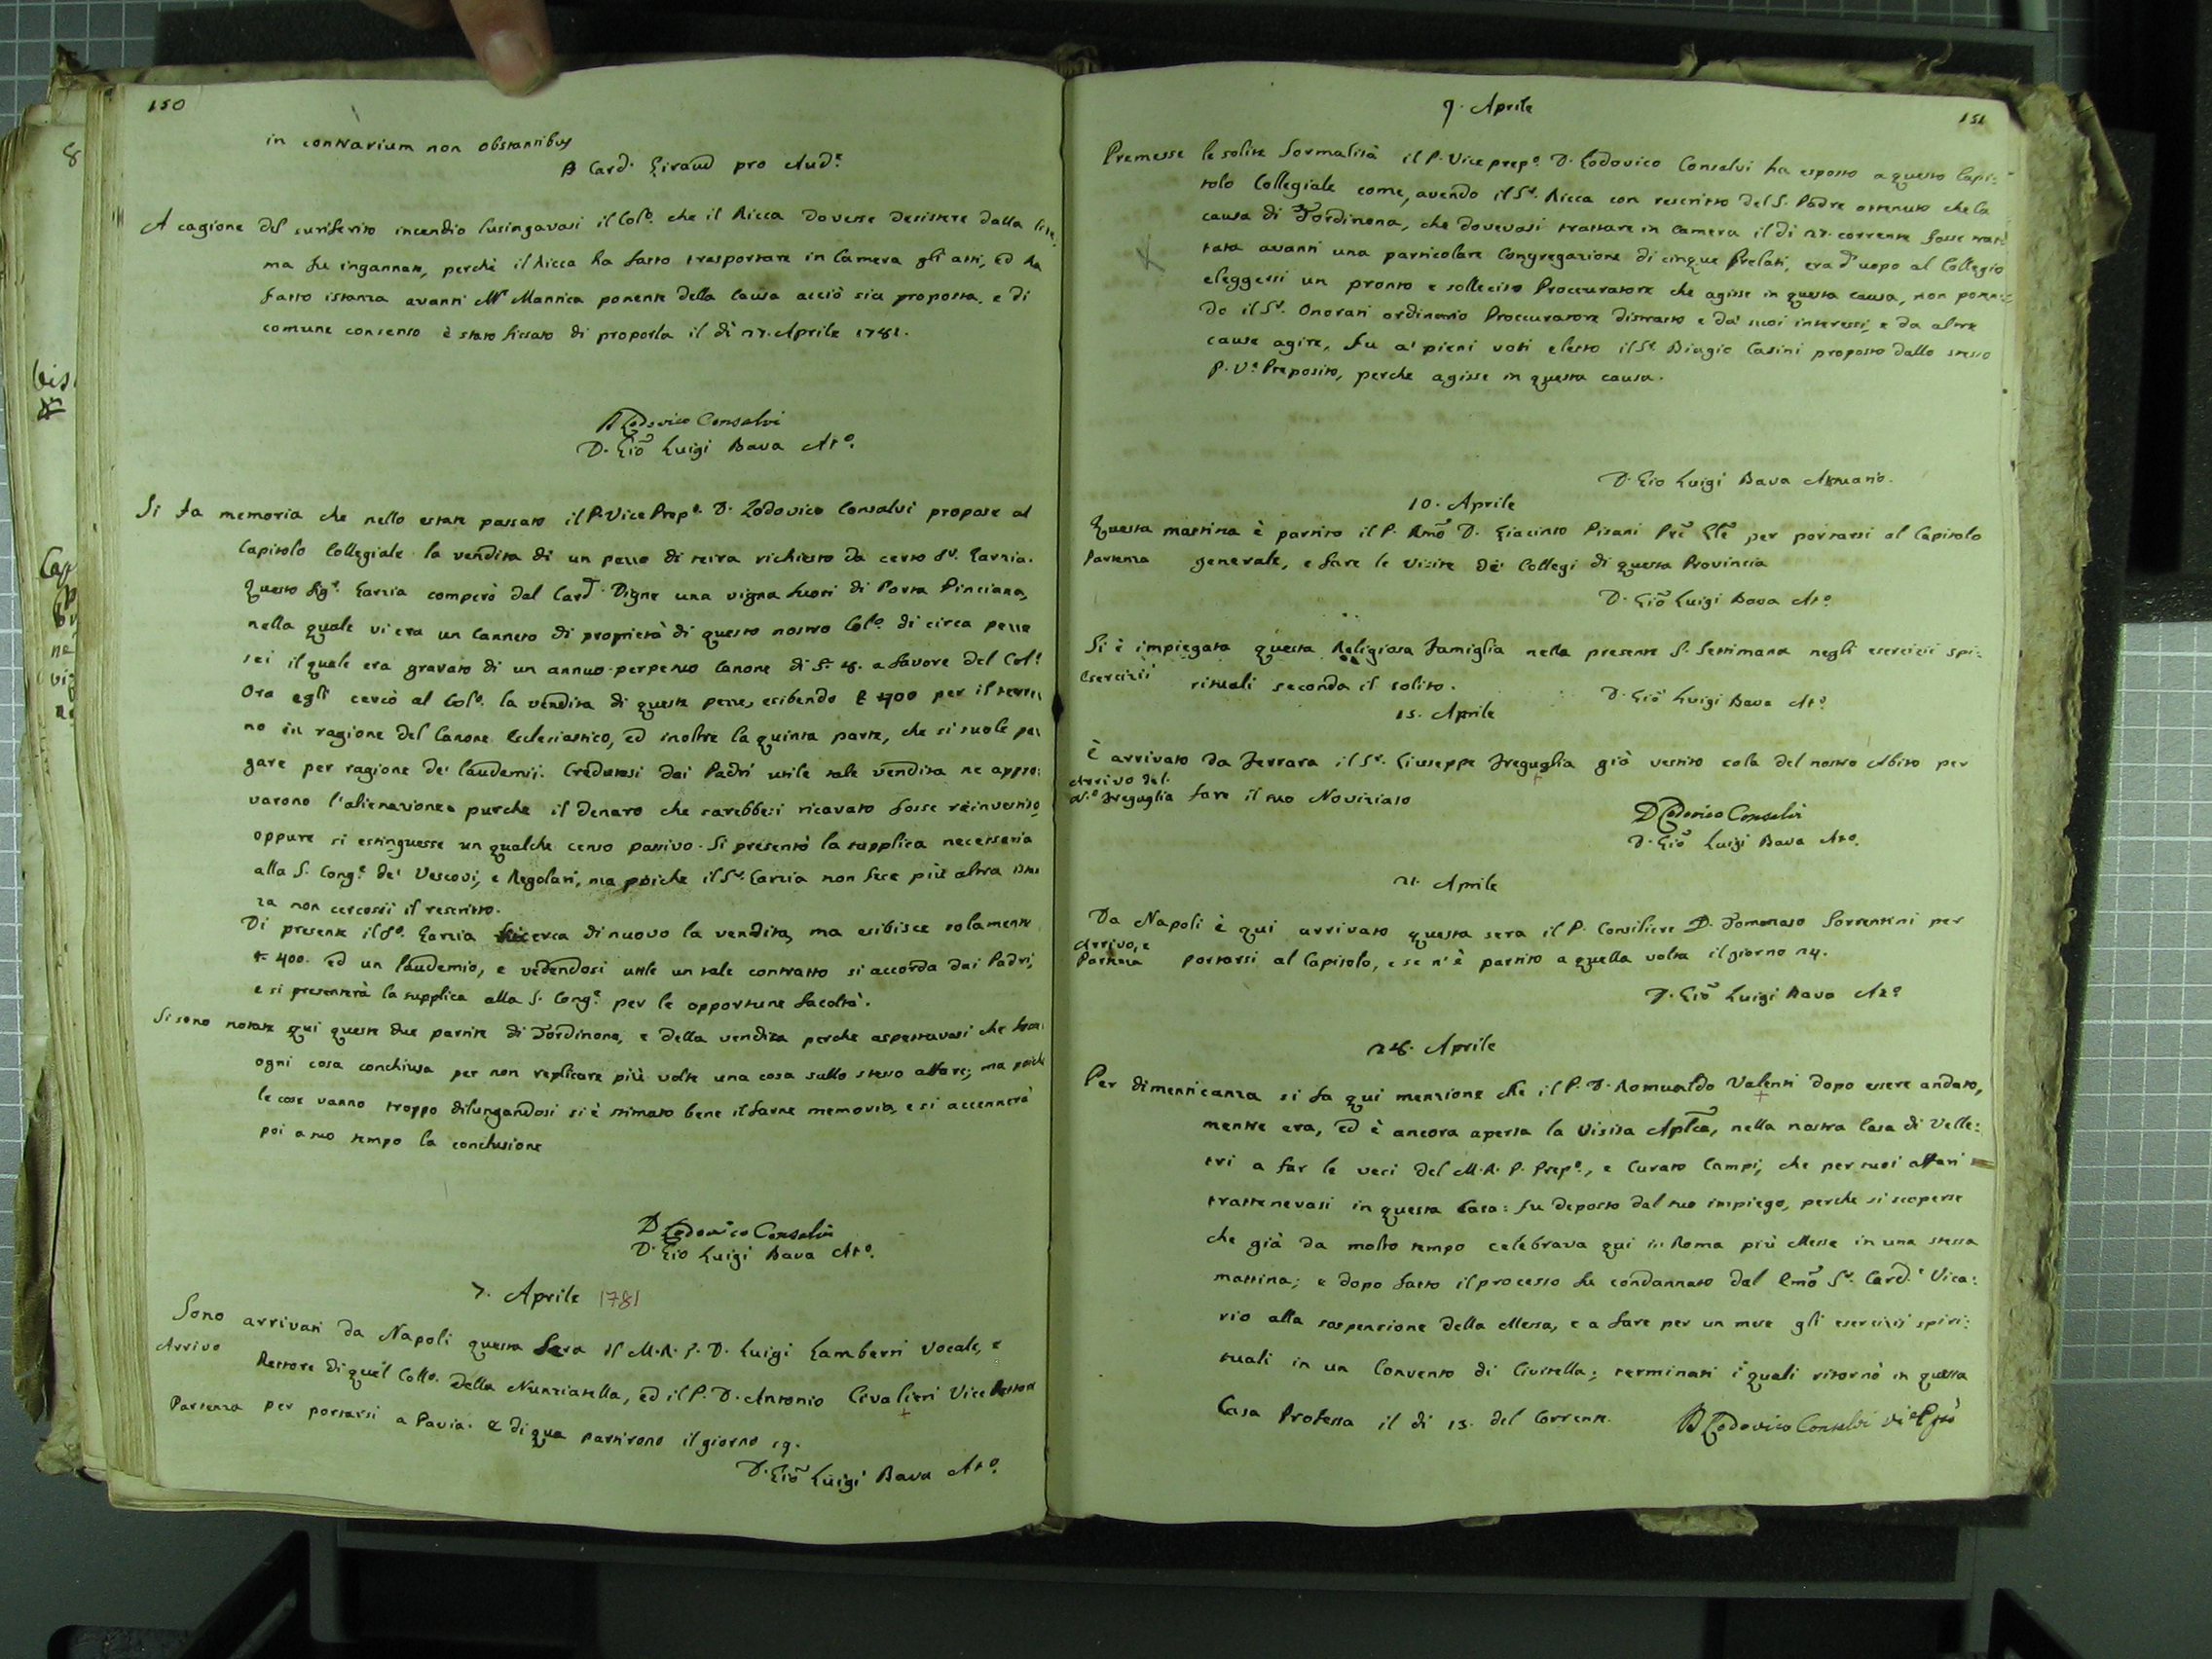 150
in contrarium non obstantibus
B Card. Giraud pro Aud.e
A cagione del suriferito incendio lusingavasi il Col.o che il Ricca dovesse desistere dalla lite,
ma fu ingannato, perchè il Ricca ha fatto trasportare in Camera gli atti, ed ha
fatto istanza avanti M.r Mannica ponente della Causa acciò sia proposta, e di
comune consenso è stato fissato di proporla il dì 27. Aprile 1781.
D Lodovico Consalvi
D. Gio Luigi Bava Att.o
Si fa memoria che nello estate passato il P. Vice Prep.o D. Lodovico Consalvi propose al
Capitolo Collegiale la vendita di un pezzo di terra richiesto da certo S.r Garzia.
Questo Sig.r Garzia comperò dal Card. Vigne una vigna fuori di Porta Pinciana,
nella quale vi era un Canneto di proprietà di questo nostro Col.o di circa pezze
sei il quale era gravato di un annuo perpetuo Canone di 8. a favore del Col.o
Ora egli cercò al Col.o la vendita di queste pezze, esibendo 400 per il terre
no in ragione del Canone Ecclesiastico, ed inoltre la quinta parte, che si suole pa
gare per ragione de' laudemii. Credutosi dai Padri utile tale vendita ne appro:
varono l'alienazione purche il denaro che sarebbesi ricavato fosse reinvestito,
oppure si estinguesse un qualche censo passivo. Si presentò la supplica necessaria
alla S. Cong.e de' Vescovi, e Regolari, ma poiche il S.r Garzia non fece più altra istan
za non cercossi il rescritto.
Di presente il S.r Garzia ricerca di nuovo la vendita, ma esibisce solamente
400. ed un laudemio, e vedendosi utile un tale contratto si accorda dai Padri,
e si presenterà la supplica alla S. Cong.e per le opportune facoltà.
Si sono notate qui queste due partite di Tordinona, e della vendita perche aspettavasi che fosse
ogni cosa conchiusa per non replicare più volte una cosa sullo stesso affare; ma poiche
le cose vanno troppo dilungandosi si è stimato bene il farne memoria, e si accennerà
poi a suo tempo la conclusione
D Lodovico Consalvi
D. Gio Luigi Bava Att.o
7. Aprile 1781
Sono arrivati da Napoli questa sera il M.R.P.D. Luigi Lamberti Vocale, e
Arrivo Rettore di quel Coll.o della Nunziatella, ed il P. D. Antonio Civalieri Vice Rettore
Partenza per portarsi a Pavia. e di qua partirono il giorno 19.
D. Gio Luigi Bava Att.o
9. Aprile
151
Premesse le solite formalità il P. Vice prep.o D. Lodovico Consalvi ha esposto a questo Capi:
tolo Collegiale come, avendo il S.r Ricca con rescritto del S. Padre ottenuto che la
causa di Tordinona, che dovevasi trattare in Camera il di 27. corrente fosse trat:
tata avanti una particolare Congregazione di cinque Prelati, era d'uopo al Collegio
eleggersi un pronto e sollecito Proccuratore che agisse in questa causa, non poten:
do il S.r Onorati ordinario Proccuratore distratto e da' suoi interessi, e da altre
cause agire, fu a' pieni voti eletto il S.r Biagio Casini proposto dallo stesso
P. V.e Preposito, perche agisse in questa causa.
D. Gio Luigi Bava Attuario.
10. Aprile
Questa mattina è partito il P. Rmo D. Giacinto Pisani Pre Gle per portarsi al Capitolo
Partenza generale, e fare le Visite de' Collegi di questa Provincia
D. Gio Luigi Bava Att.o
Si è impiegata questa Religiosa Famiglia nella presente S. Settimana negli esercizii spi:
Esercizii rituali secondo il solito.
D. Gio Luigi Bava Att.o
15. Aprile
È arrivato da Ferrara il S.r Giuseppe Freguglia già vestito cola del nostro Abito per
Arrivo del
N.o Freguglia fare il suo Noviziato
D Lodovico Consalvi
D. Gio Luigi Bava Att.o
21. Aprile
Da Napoli è qui arrivato questa sera il P. Consiliere D. Tommaso Sorrentini per
Arrivo, e
Partenza portarsi al Capitolo, e se n'è partito a quella volta il giorno 24.
D. Gio Luigi Bava Att.o
28. Aprile
Per dimenticanza si fa qui menzione che il P. D. Romualdo Valenti dopo essere andato,
mentre era, ed è ancora aperta la Visita Aplca, nella nostra Casa di Velle:
tri a far le veci del M.R.P. Prep.o, e Curato Campi, che per suoi affari
trattenevasi in questa Casa: fu deposto dal suo impiego, perche si scoperse
che già da molto tempo celebrava qui in Roma più Messe in una stessa
mattina; e dopo fatto il processo fu condannato dal Emo S.r Card.l Vica:
rio alla sospensione della Messa, e a fare per un mese gli esercizii spiri:
tuali in un Convento di Civitella; terminati i quali ritornò in questa
Casa Professa il di 13. del Corrente.
D Lodovico Consalvi